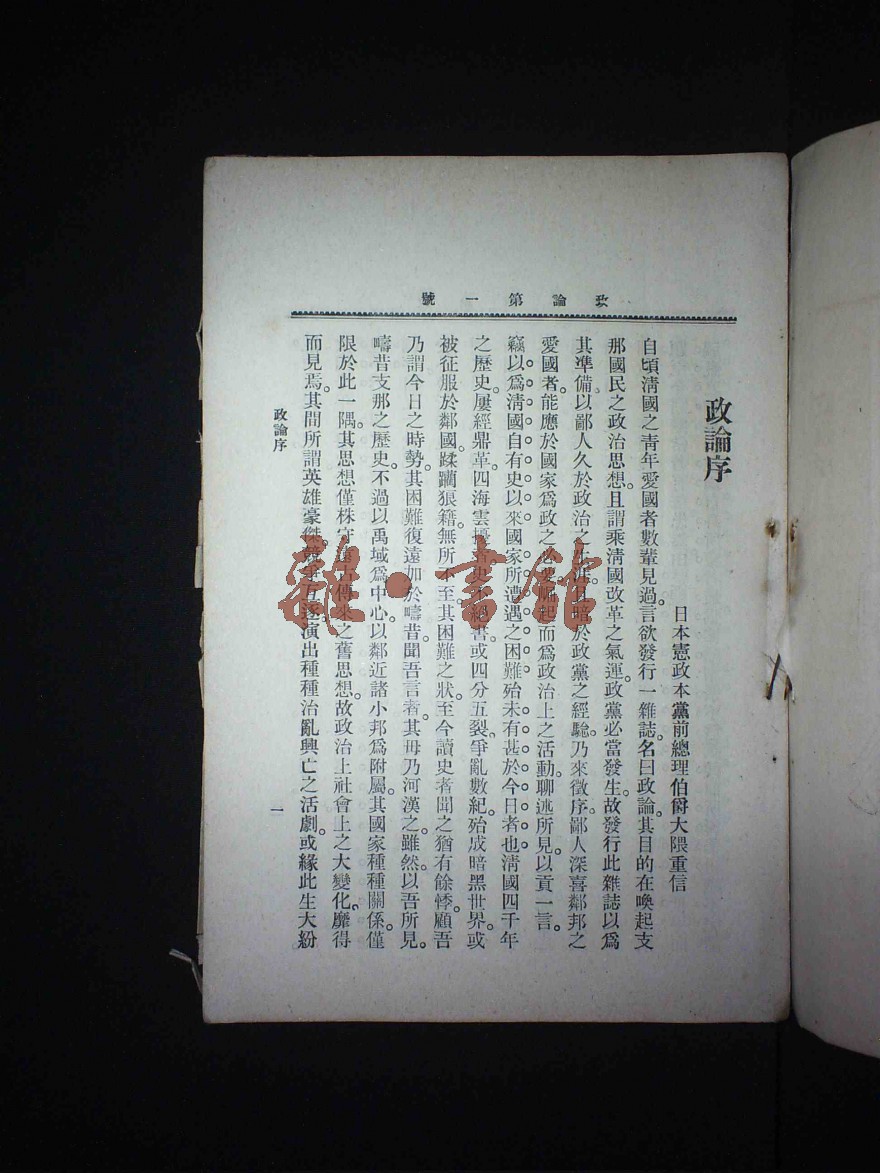 政論第一號
政論序
日本憲政本黨前總理伯爵大隈重信
自頃淸國之靑年愛國者數輩見過。言欲發行一雜誌。名曰政論。其目的在喚起支
那國民之政治思想。且謂乘淸國改革之氣運。政黨必當發生。故發行此雜誌以爲
其準備。以鄙人久於政治之生涯。且暗於政黨之經驗。乃來徵序。鄙人深喜鄰邦之
愛國者。能應於國家爲政之必要。崛起而爲政治上之活動。聊述所見。以貢一言。
竊以爲淸國自有史以來國家所遭遇之困難殆未有甚於今日者也。淸國四千年
之歷史。屢經鼎革。四海雲擾。殆史不絕書。或四分五裂。爭亂數紀。殆成暗黑世界。或
被征服於鄰國。蹂躪狼籍。無所不至。其困難之狀。至今讀史者聞之猶有餘悸。顧吾
乃謂今日之時勢。其困難復遠加於疇昔。聞吾言者。其毋乃河漢之。雖然。以吾所見。
疇昔支那之歷史。不過以禹域爲中心。以鄰近諸小邦爲附屬。其國家種種關係。僅
限於此一隅。其思想僅株守遠古傳來之舊思想。故政治上社會上之大變化。靡得
而見焉。其間所謂英雄豪傑。競爭互逐。演出種種治亂興亡之活劇。或緣此生大紛
政論序
一
雜·書館